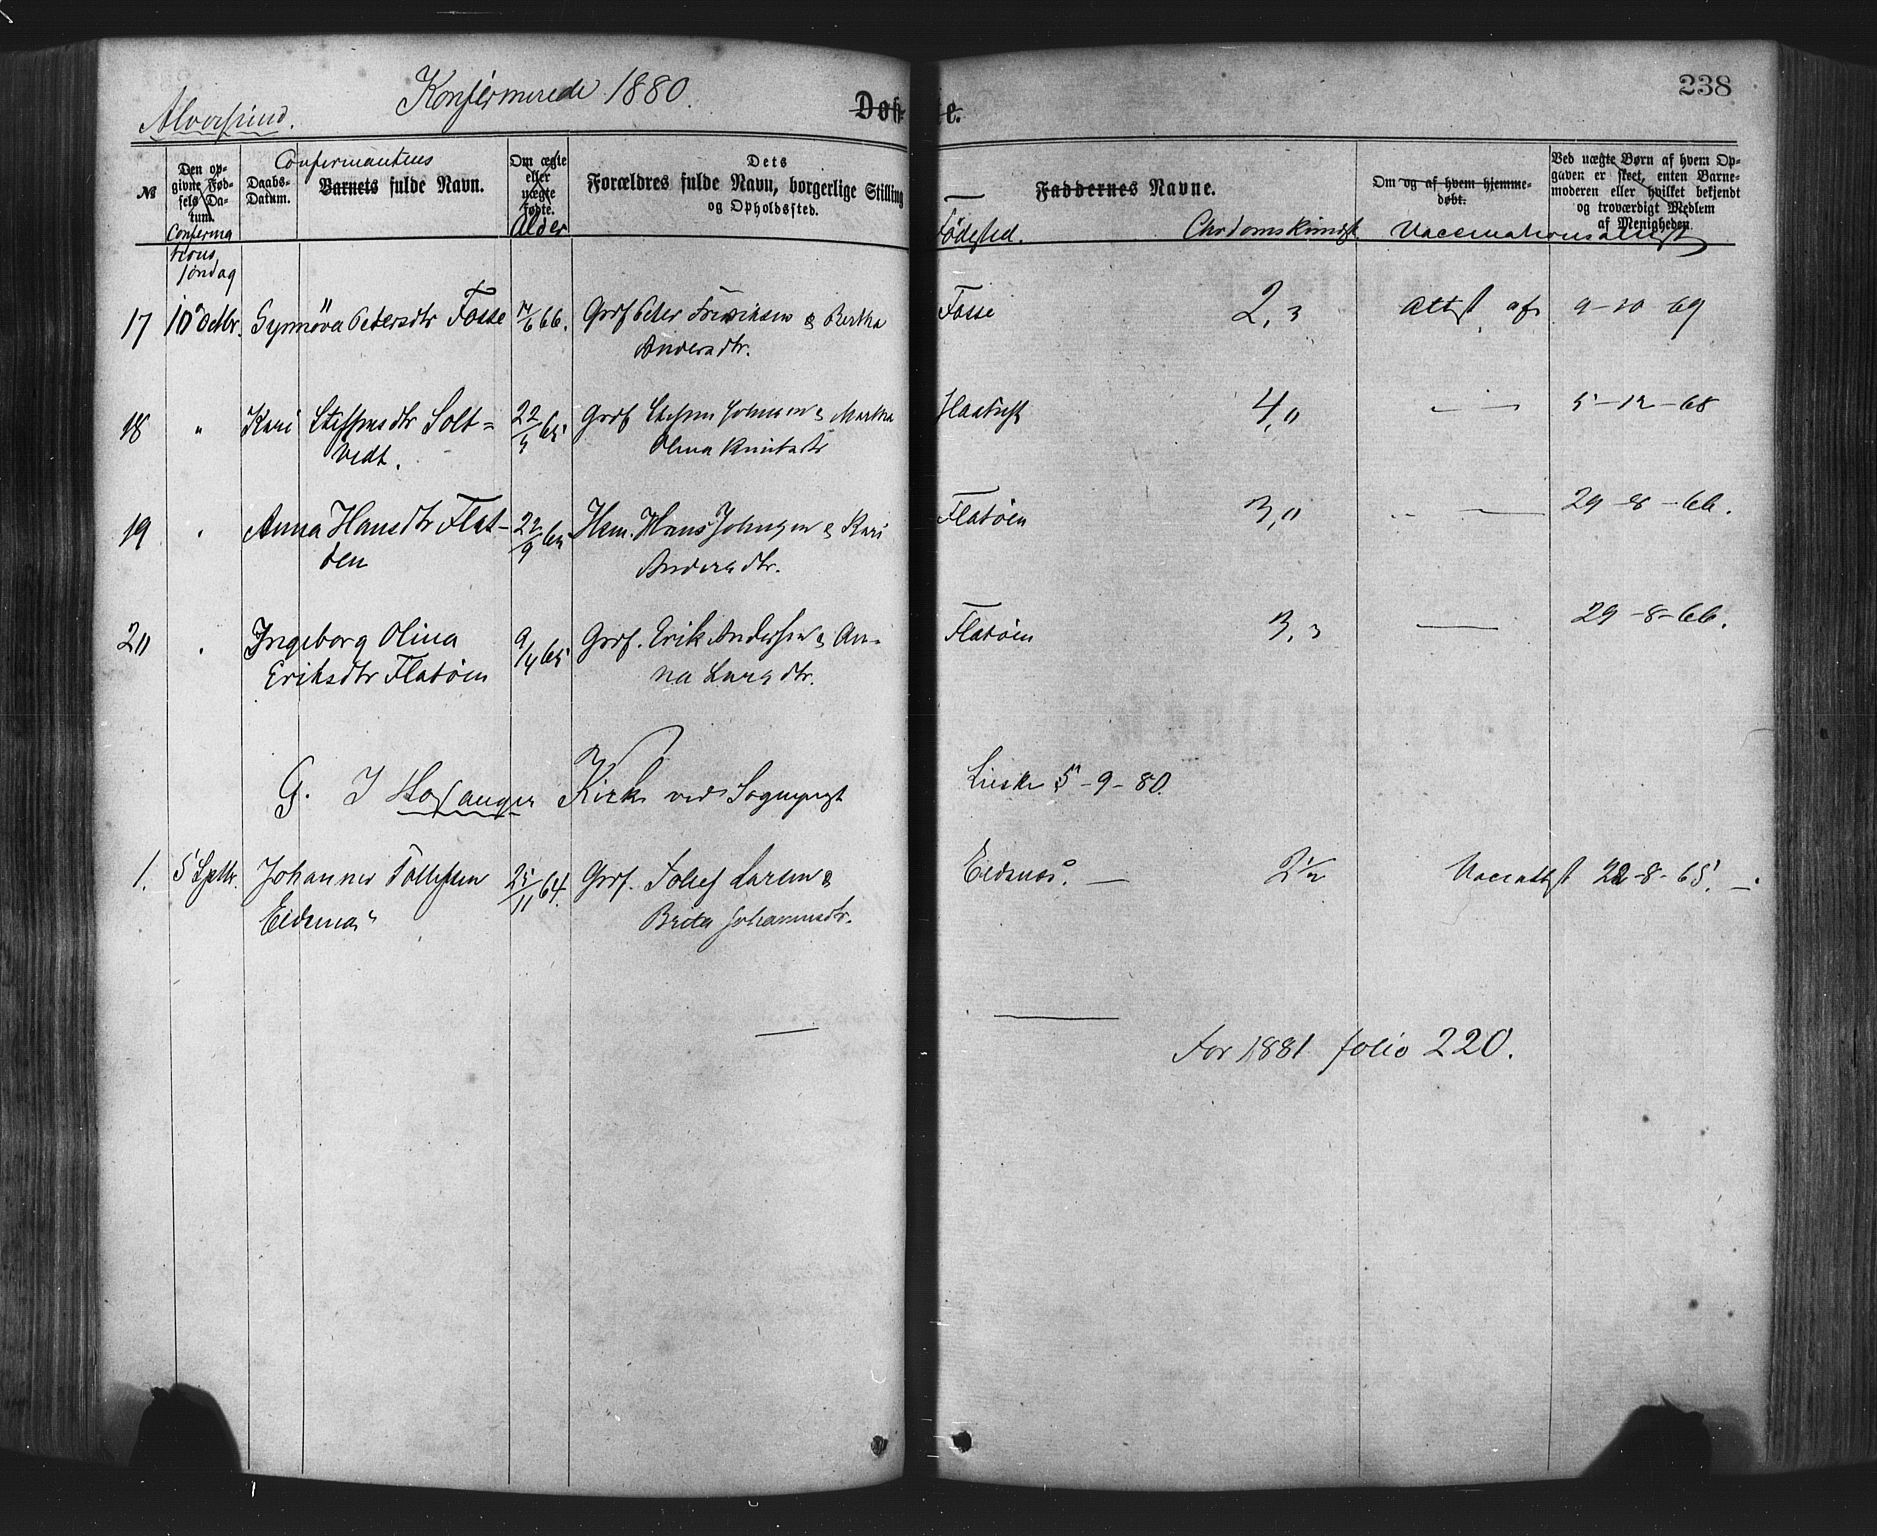 238
Konfirmerede 1880.
Alversund.
Døbte.
№
Den opgivne Fødsels Datum.
Confirmations Søndag
Daabs-Datum.
Confirmantens
Barnets fulde Navn.
Om ægte eller uægte fødte.
Alder
Dets
Forældres fulde Navn, borgerlige Stilling
og Opholdssted.
Faddernes Navne.
Fødested.
Om og af hvem hjemme-
døbt.
Ved uægte Børn af hvem Op-
gaven er skeet, enten Barne-
moderen eller hvilket bekjendt
og troværdigt Medlem
af Menigheden.
Vaccinationsattest
17 10 Octbr. Synnøva Petersdtr Fosse 66. Grdf Peder & Bertha Fosse 2,3 Attst af 9-10 69
Andersdtr.
18 " Kari Steffensdtr Solt= 22 65 Grdf Steffen Johnsen & Martha 4,0 5-12-68
vedt. Olina Knutsdtr
19 " Anna Hansdtr Flat- 22/9 65 Hans Johnsen & Kari Flatøen 3,0 29-8-66.
øen Andersdtr.
20 " Ingeborg Olina 9/4 65 Grdf. Erik Andersen & An- Flatøen 3,3 29-8-66.
Eriksdtr Flatøen na Larsdtr.
G. I Hosanger Kirke ved Sognepræst 5-9-80.
1. 5 Septbr. Johannes Tollefsen 25/11 64. Grdf. Tollef Larsen & Eidsnes. 2½ Vaccattst 22-8-65.
Eidsnes Brita Johannesdtr.
For 1881 folio 220.